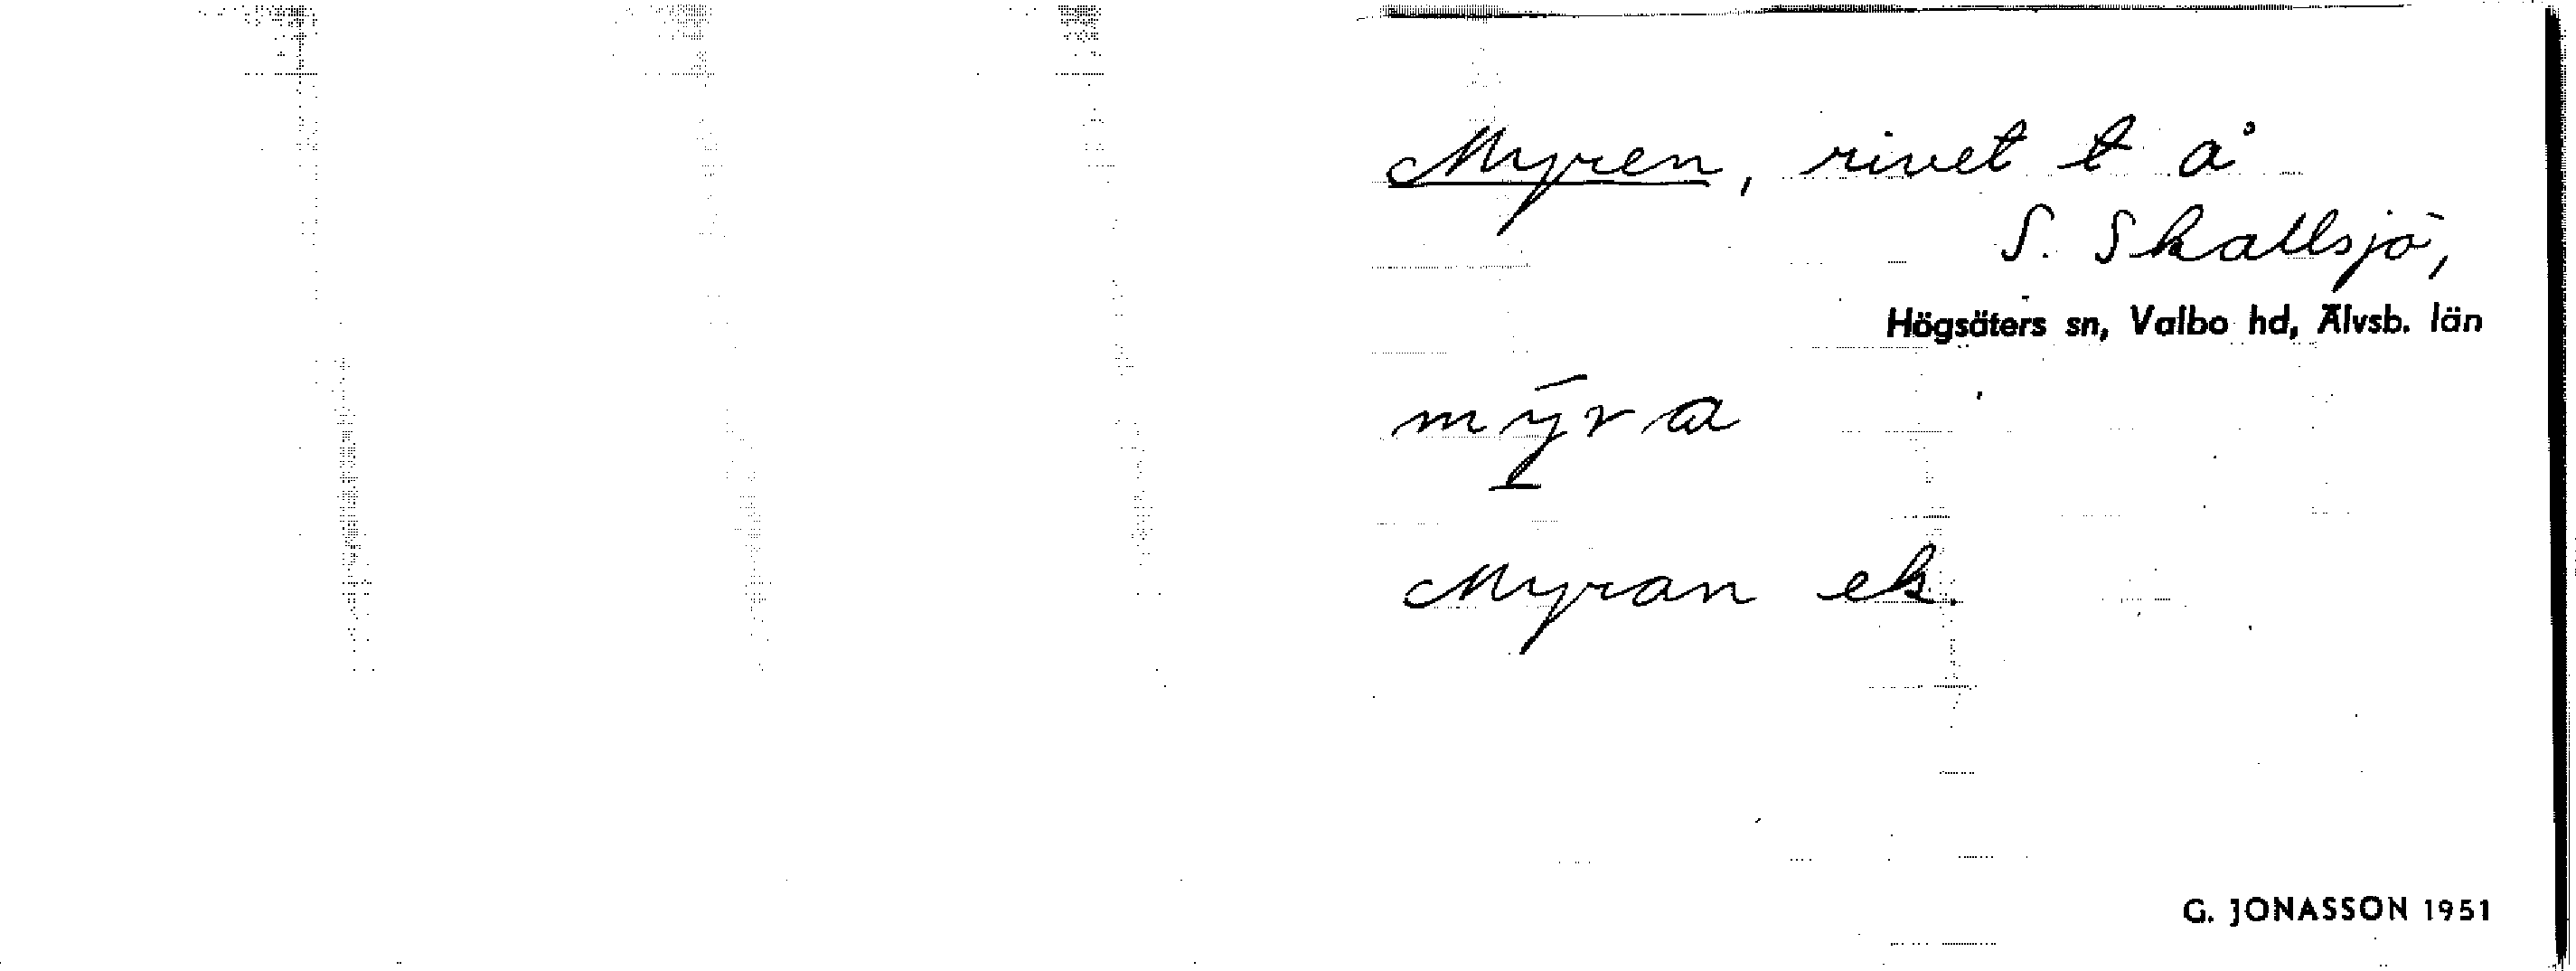 Myren, rivet t å
S. Skallsjö,
Högsäters sn, Valbo hd, Älvsb. län
mȳ̠ra
Myran ek.
G. JONASSON 1951